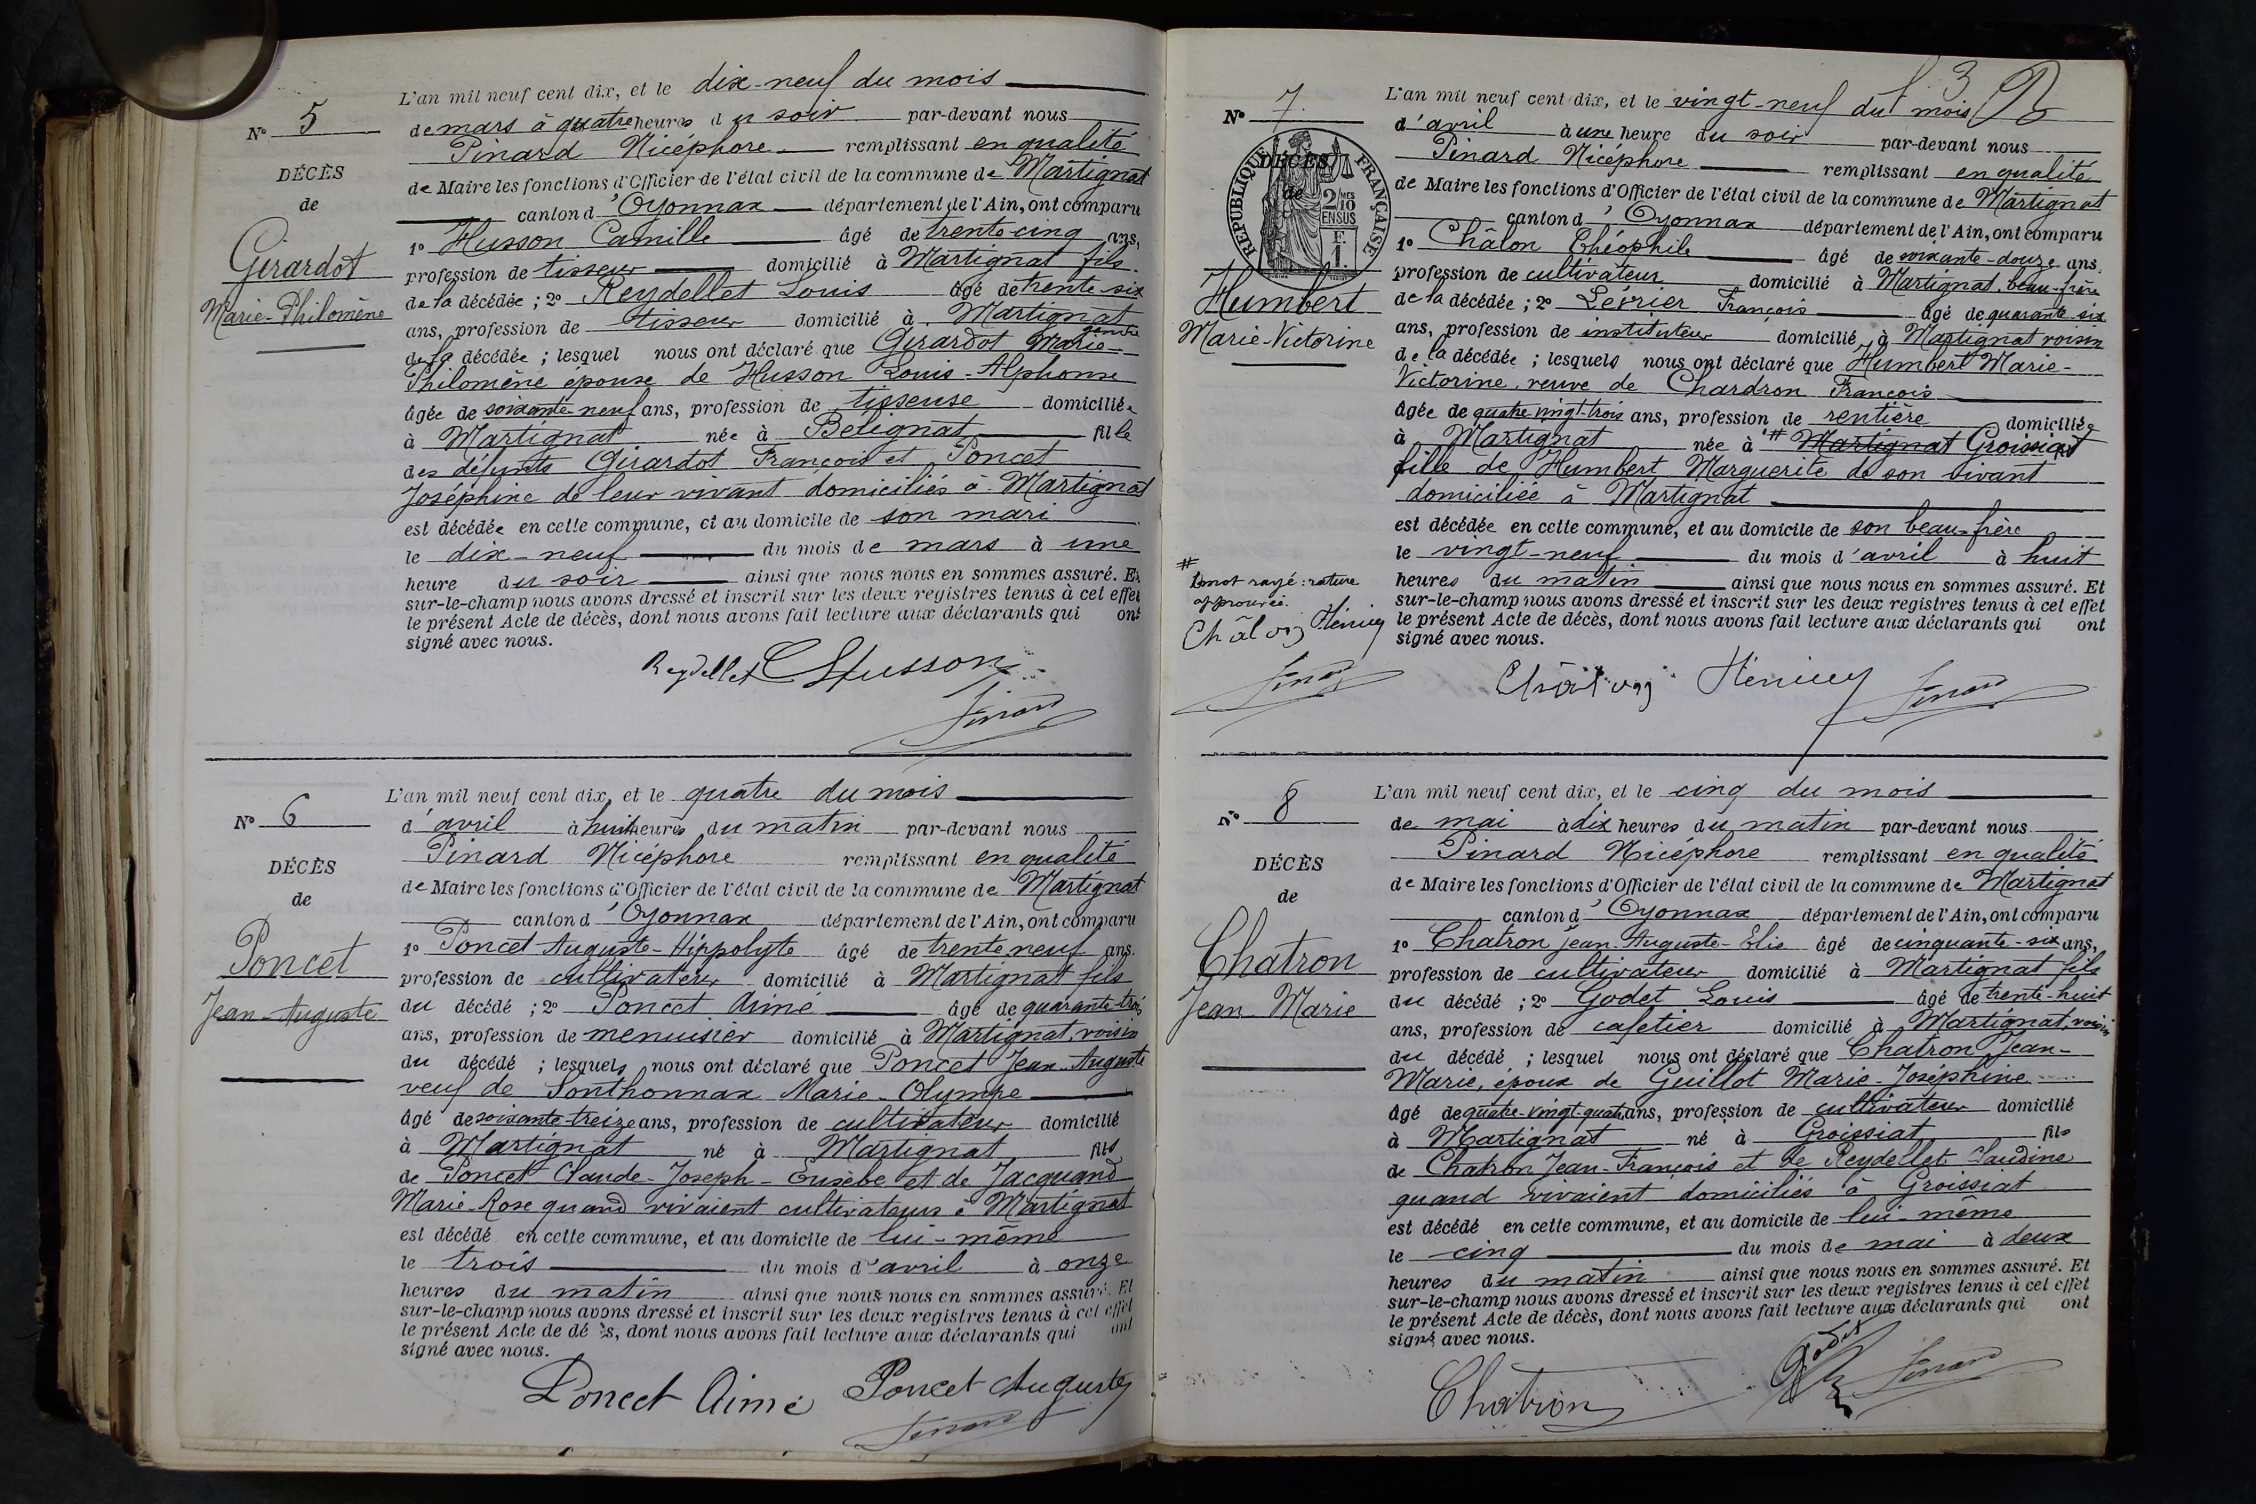 N° 5
DÉCÈS
de
Girardot
Marie-Philomène
L'an mil neuf cent dix, et le dix-neuf du mois
de mars à quatre heures du soir par-devant nous
Pinard Nicéphore remplissant en qualité
de Maire les fonctions d'Officier de l'état civil de la commune de Martignat
canton d'Oyonnax département de l'Ain, ont comparu
1° Husson Camille âgé de trente-cinq ans,
profession de tisseur domicilié à Martignat fils
de la décédée ; 2° Reydellet Louis âgé de trente-six
ans, profession de tisseur domicilié à Martignat gendre
de la décédée ; lesquel nous ont déclaré que Girardot Marie-
Philomène épouse de Husson Louis-Alphonse
âgée de soixante-neuf ans, profession de tisseuse domiciliée
à Martignat née à Bélignat fille
des défunts Girardot François et Poncet
Joséphine de leur vivant domiciliés à Martignat
est décédée en cette commune, et au domicile de son mari
le dix-neuf du mois de mars à une
heure du soir ainsi que nous nous en sommes assuré. Et
sur-le-champ nous avons dressé et inscrit sur les deux registres tenus à cet effet
le présent Acte de décès, dont nous avons fait lecture aux déclarants qui ont
signé avec nous.
Reydellet C Husson
Pinard
N° 6
DÉCÈS
de
Poncet
Jean-Auguste
L'an mil neuf cent dix, et le quatre du mois
d'avril à huit heures du matin par-devant nous
Pinard Nicéphore remplissant en qualité
de Maire les fonctions d'Officier de l'état civil de la commune de Martignat
canton d'Oyonnax département de l'Ain, ont comparu
1° Poncet Auguste-Hippolyte âgé de trente neuf ans.
profession de cultivateur domicilié à Martignat fils
du décédé ; 2° Poncet Aimé âgé de quarante-trois
ans, profession de menuisier domicilié à Martignat, voisin
du décédé ; lesquels nous ont déclaré que Poncet Jean-Auguste
veuf de Sonthonnax Marie-Olympe
âgé de soixante-treize ans, profession de cultivateur domicilié
à Martignat né à Martignat fils
de Poncet Claude-Joseph-Eusèbe et de Jacquand
Marie-Rose quand vivaient cultivateurs à Martignat
est décédé en cette commune, et au domicile de lui-même
le trois du mois d'avril à onze
heures du matin ainsi que nous nous en sommes assuré. Et
sur-le-champ nous avons dressé et inscrit sur les deux registres tenus à cet effet
le présent Acte de décès, dont nous avons fait lecture aux déclarants qui ont
signé avec nous.
Poncet Aimé Poncet Auguste
Pinard
3
N° 7
DÉCÈS
de
RÉPUBLIQUE FRANÇAISE
2/10 MES
EN SUS
F.
1.
Humbert
Marie-Victorine
L'an mil neuf cent dix, et le vingt-neuf du mois
d'avril à une heure du soir par-devant nous
Pinard Nicéphore remplissant en qualité
de Maire les fonctions d'Officier de l'état civil de la commune de Martignat
canton d'Oyonnax département de l'Ain, ont comparu
1° Châlon Théophile âgé de soixante-douze ans,
profession de cultivateur domicilié à Martignat, beau-frère
de la décédée ; 2° Lévrier François âgé de quarante-six
ans, profession de instituteur domicilié à Martignat voisin
de la décédée ; lesquels nous ont déclaré que Humbert Marie-
Victorine, veuve de Chardron François
âgée de quatre-vingt-trois ans, profession de rentière domiciliée
à Martignat née à # Martignat Groissiat
fille de Humbert Marguerite de son vivant
domiciliée à Martignat
est décédée en cette commune, et au domicile de son beau-frère
le vingt-neuf du mois d'avril à huit
heures du matin ainsi que nous nous en sommes assuré. Et
sur-le-champ nous avons dressé et inscrit sur les deux registres tenus à cet effet
le présent Acte de décès, dont nous avons fait lecture aux déclarants qui ont
signé avec nous.
#
1 mot rayé : rature
approuvée.
Châlon
Pinard
Châlon Pinard
N° 8
DÉCÈS
de
Chatron
Jean-Marie
L'an mil neuf cent dix, et le cinq du mois
de mai à dix heures du matin par-devant nous
Pinard Nicéphore remplissant en qualité
de Maire les fonctions d'Officier de l'état civil de la commune de Martignat
canton d'Oyonnax département de l'Ain, ont comparu
1° Chatron Jean-Auguste-Elie âgé de cinquante-six ans,
profession de cultivateur domicilié à Martignat fils
du décédé ; 2° Godet Louis âgé de trente-huit
ans, profession de cafetier domicilié à Martignat, voisin
du décédé ; lesquel nous ont déclaré que Chatron Jean-
Marie, époux de Guillot Marie-Joséphine
âgé de quatre-vingt-quatre ans, profession de cultivateur domicilié
à Martignat né à Groissiat fils
de Chatron Jean-François et de Reydellet Claudine
quand vivaient domiciliés à Groissiat
est décédé en cette commune, et au domicile de lui-même
le cinq du mois de mai à deux
heures du matin ainsi que nous nous en sommes assuré. Et
sur-le-champ nous avons dressé et inscrit sur les deux registres tenus à cet effet
le présent Acte de décès, dont nous avons fait lecture aux déclarants qui ont
signé avec nous.
Chatron Godet Pinard